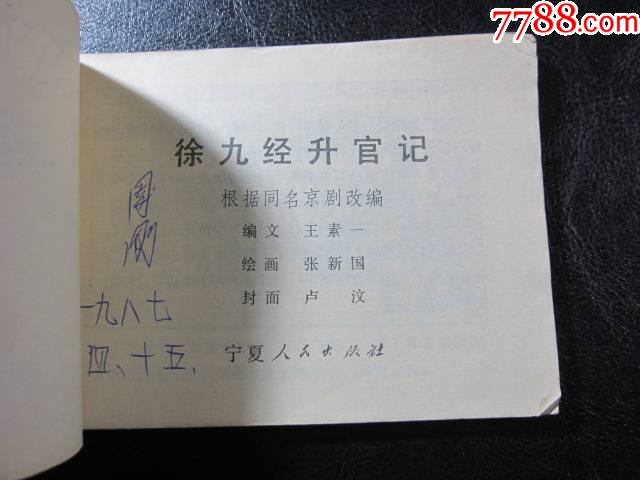 7788.com
徐九经升官记
根据同名京剧改编
编文 王素一
绘画 张新国
封面 卢汶
宁夏人民出版社
周刚
一九八七
四、十五、